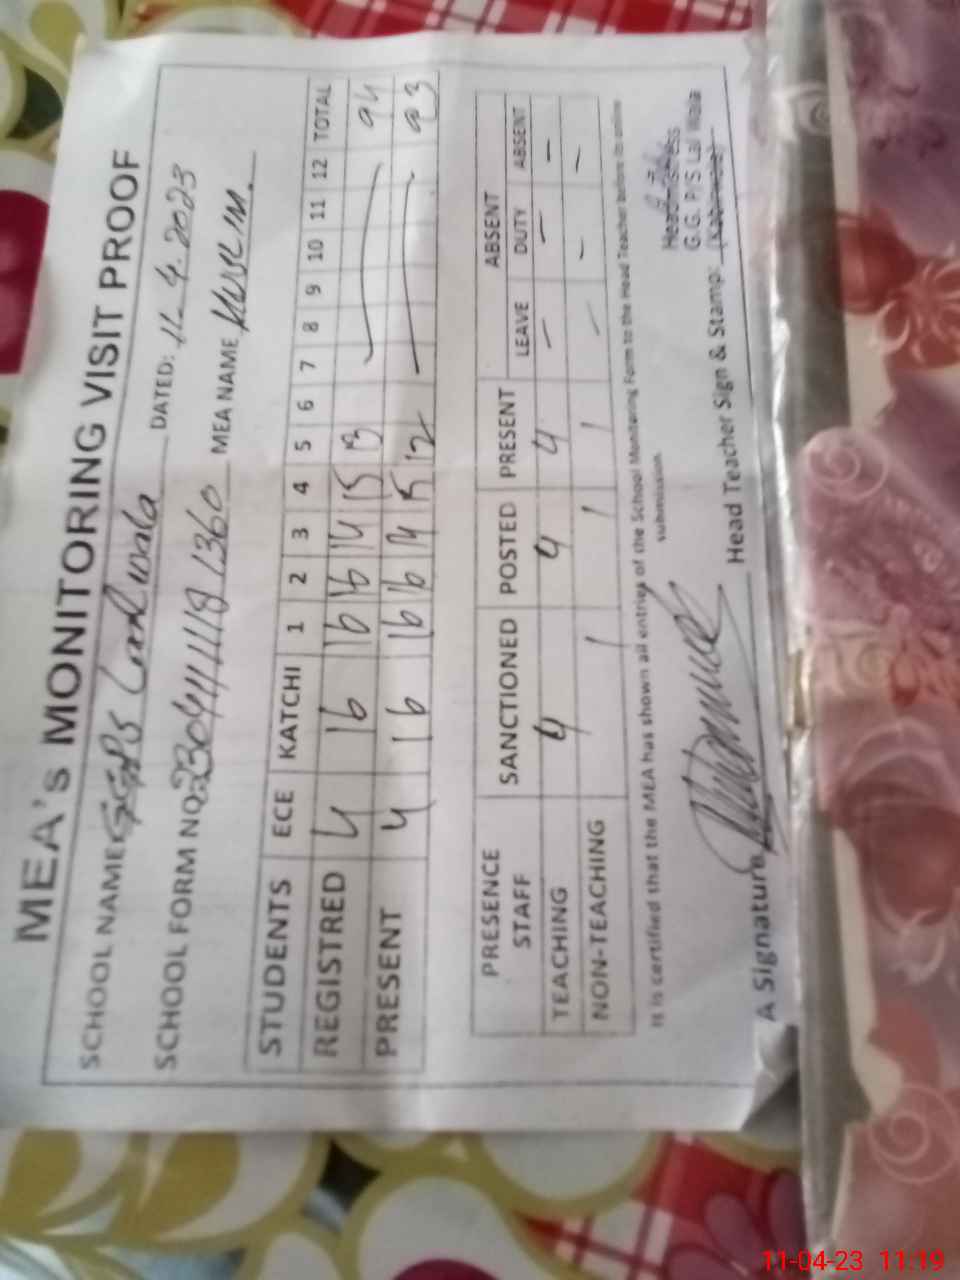 MEA's MONITORING VISIT PROOF
SCHOOL NAME GGPS Lal wala DATED: 11-4-2023
SCHOOL FORM NO. MEA NAME
STUDENTS ECE KATCHI 1 2 3 4 5 6 7 8 9 10 11 12 TOTAL
REGISTRED 4 16 16 16 14 15 13 94
PRESENT 4 16 16 16 14 15 12 93
PRESENCE STAFF SANCTIONED POSTED PRESENT ABSENT
LEAVE DUTY ABSENT
TEACHING 4 4 4 - - -
NON-TEACHING 1 1 1 - - -
It is certified that the MEA has shown all entries of the School Monitoring Form to the Head Teacher before its online submission.
Headmistress
G.G. P/S Lal Wala
(Kabirwala)
A Signature Head Teacher Sign & Stamp:
11-04-23 11:19